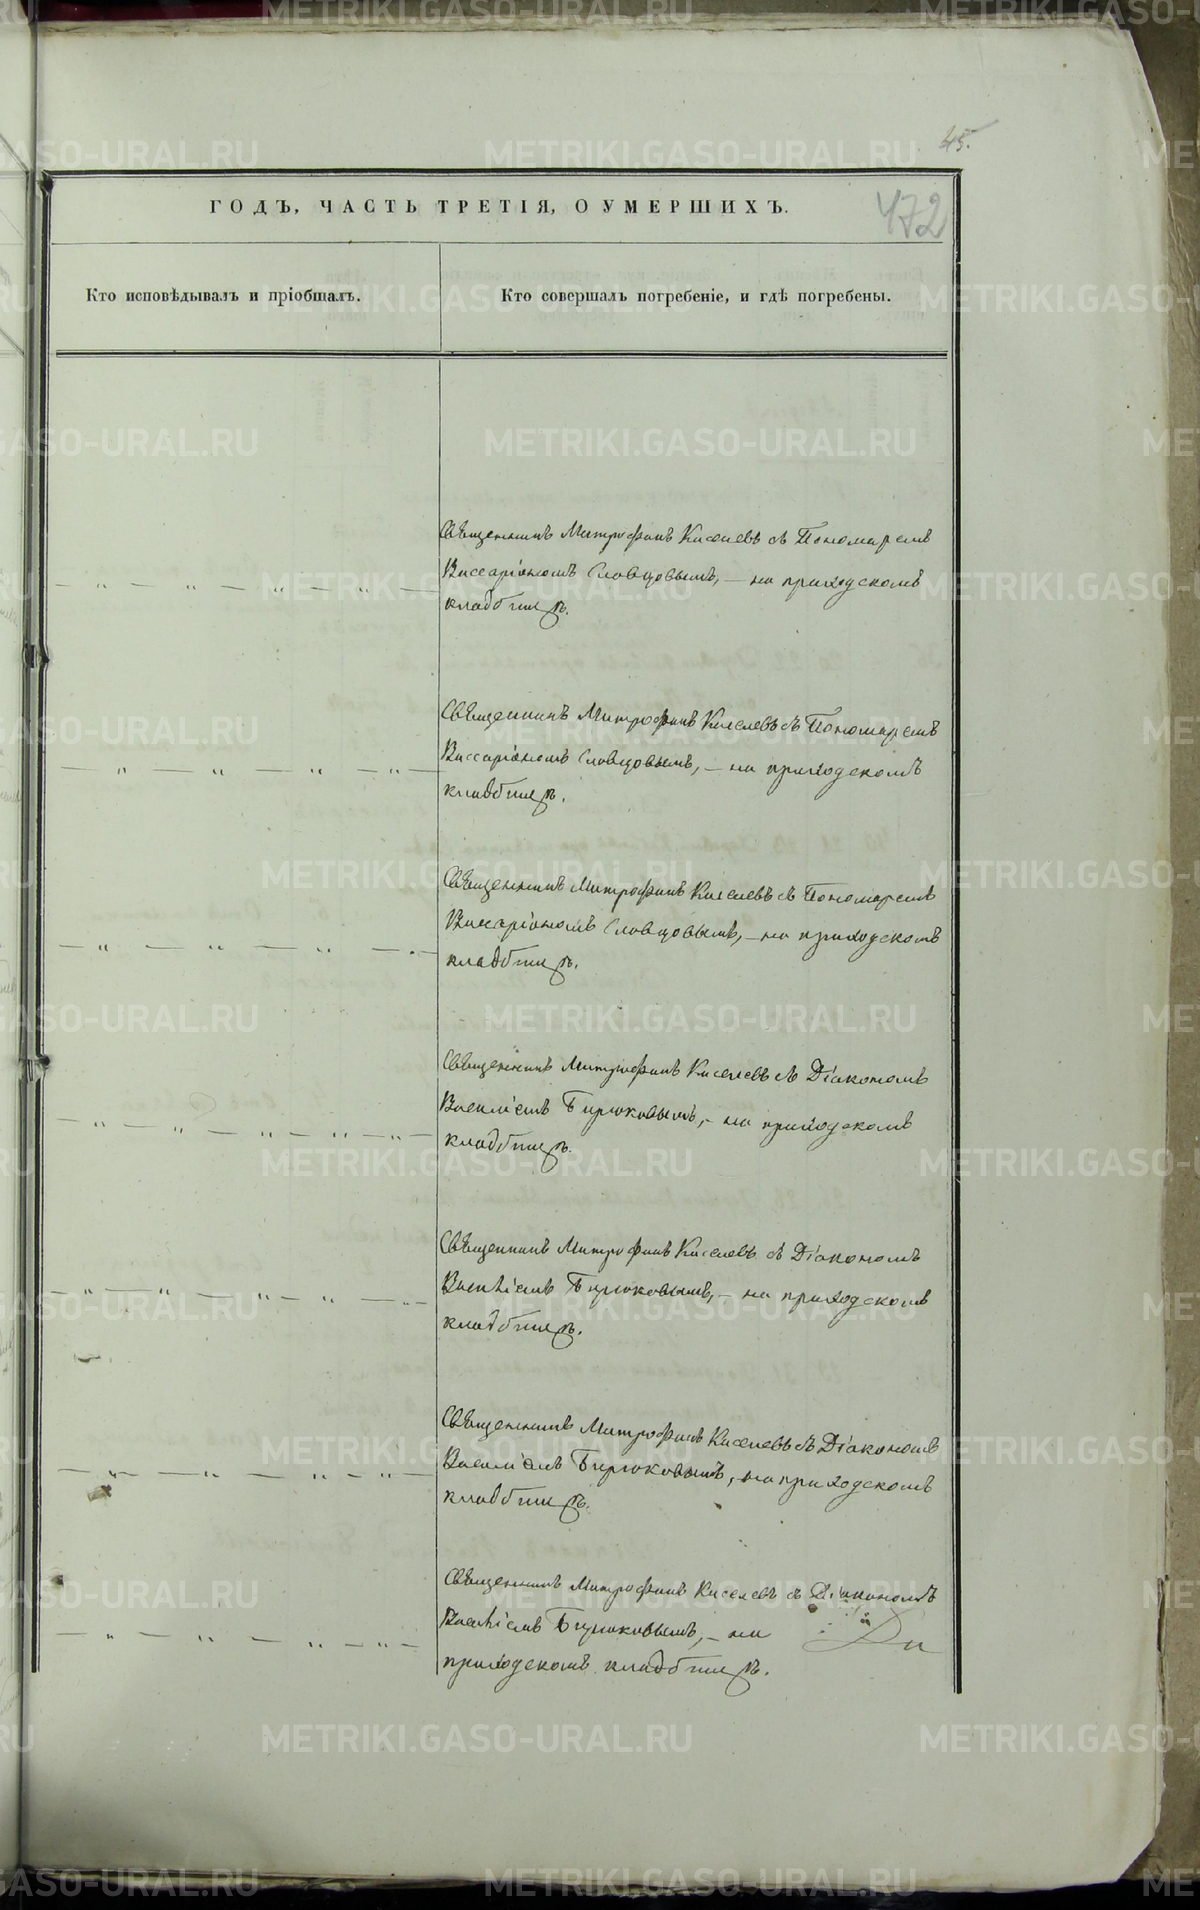 45.
ГОДЪ, ЧАСТЬ ТРЕТІЯ, О УМЕРШИХЪ.
472
Кто исповѣдывалъ и пріобщалъ.
Кто совершалъ погребеніе, и гдѣ погребены.
Священникъ Митрофанъ Киселевъ съ Пономаремъ
— „ — „ — „ — „ — Виссаріономъ Словцовымъ, — на приходскомъ
кладбищѣ.
Священникъ Митрофанъ Киселевъ съ Пономаремъ
— „ — „ — „ — „ — Виссаріономъ Словцовымъ, — на приходскомъ
кладбищѣ.
Священникъ Митрофанъ Киселевъ съ Пономаремъ
— „ — „ — „ — „ — Виссаріономъ Словцовымъ, — на приходскомъ
кладбищѣ.
Священникъ Митрофанъ Киселевъ съ Діакономъ
— „ — „ — „ — „ — „ — Василіемъ Бирюковымъ, — на приходскомъ
кладбищѣ.
Священникъ Митрофанъ Киселевъ съ Діакономъ
— „ — „ — „ — „ — „ — Василіемъ Бирюковымъ, — на приходскомъ
кладбищѣ.
Священникъ Митрофанъ Киселевъ съ Діакономъ
— „ — „ — „ — „ — Василіемъ Бирюковымъ, на приходскомъ
кладбищѣ.
Священникъ Митрофанъ Киселевъ съ Діакономъ
— „ — „ — „ — „ — Василіемъ Бирюковымъ, — на
приходскомъ кладбищѣ.
METRIKI.GASO-URAL.RU